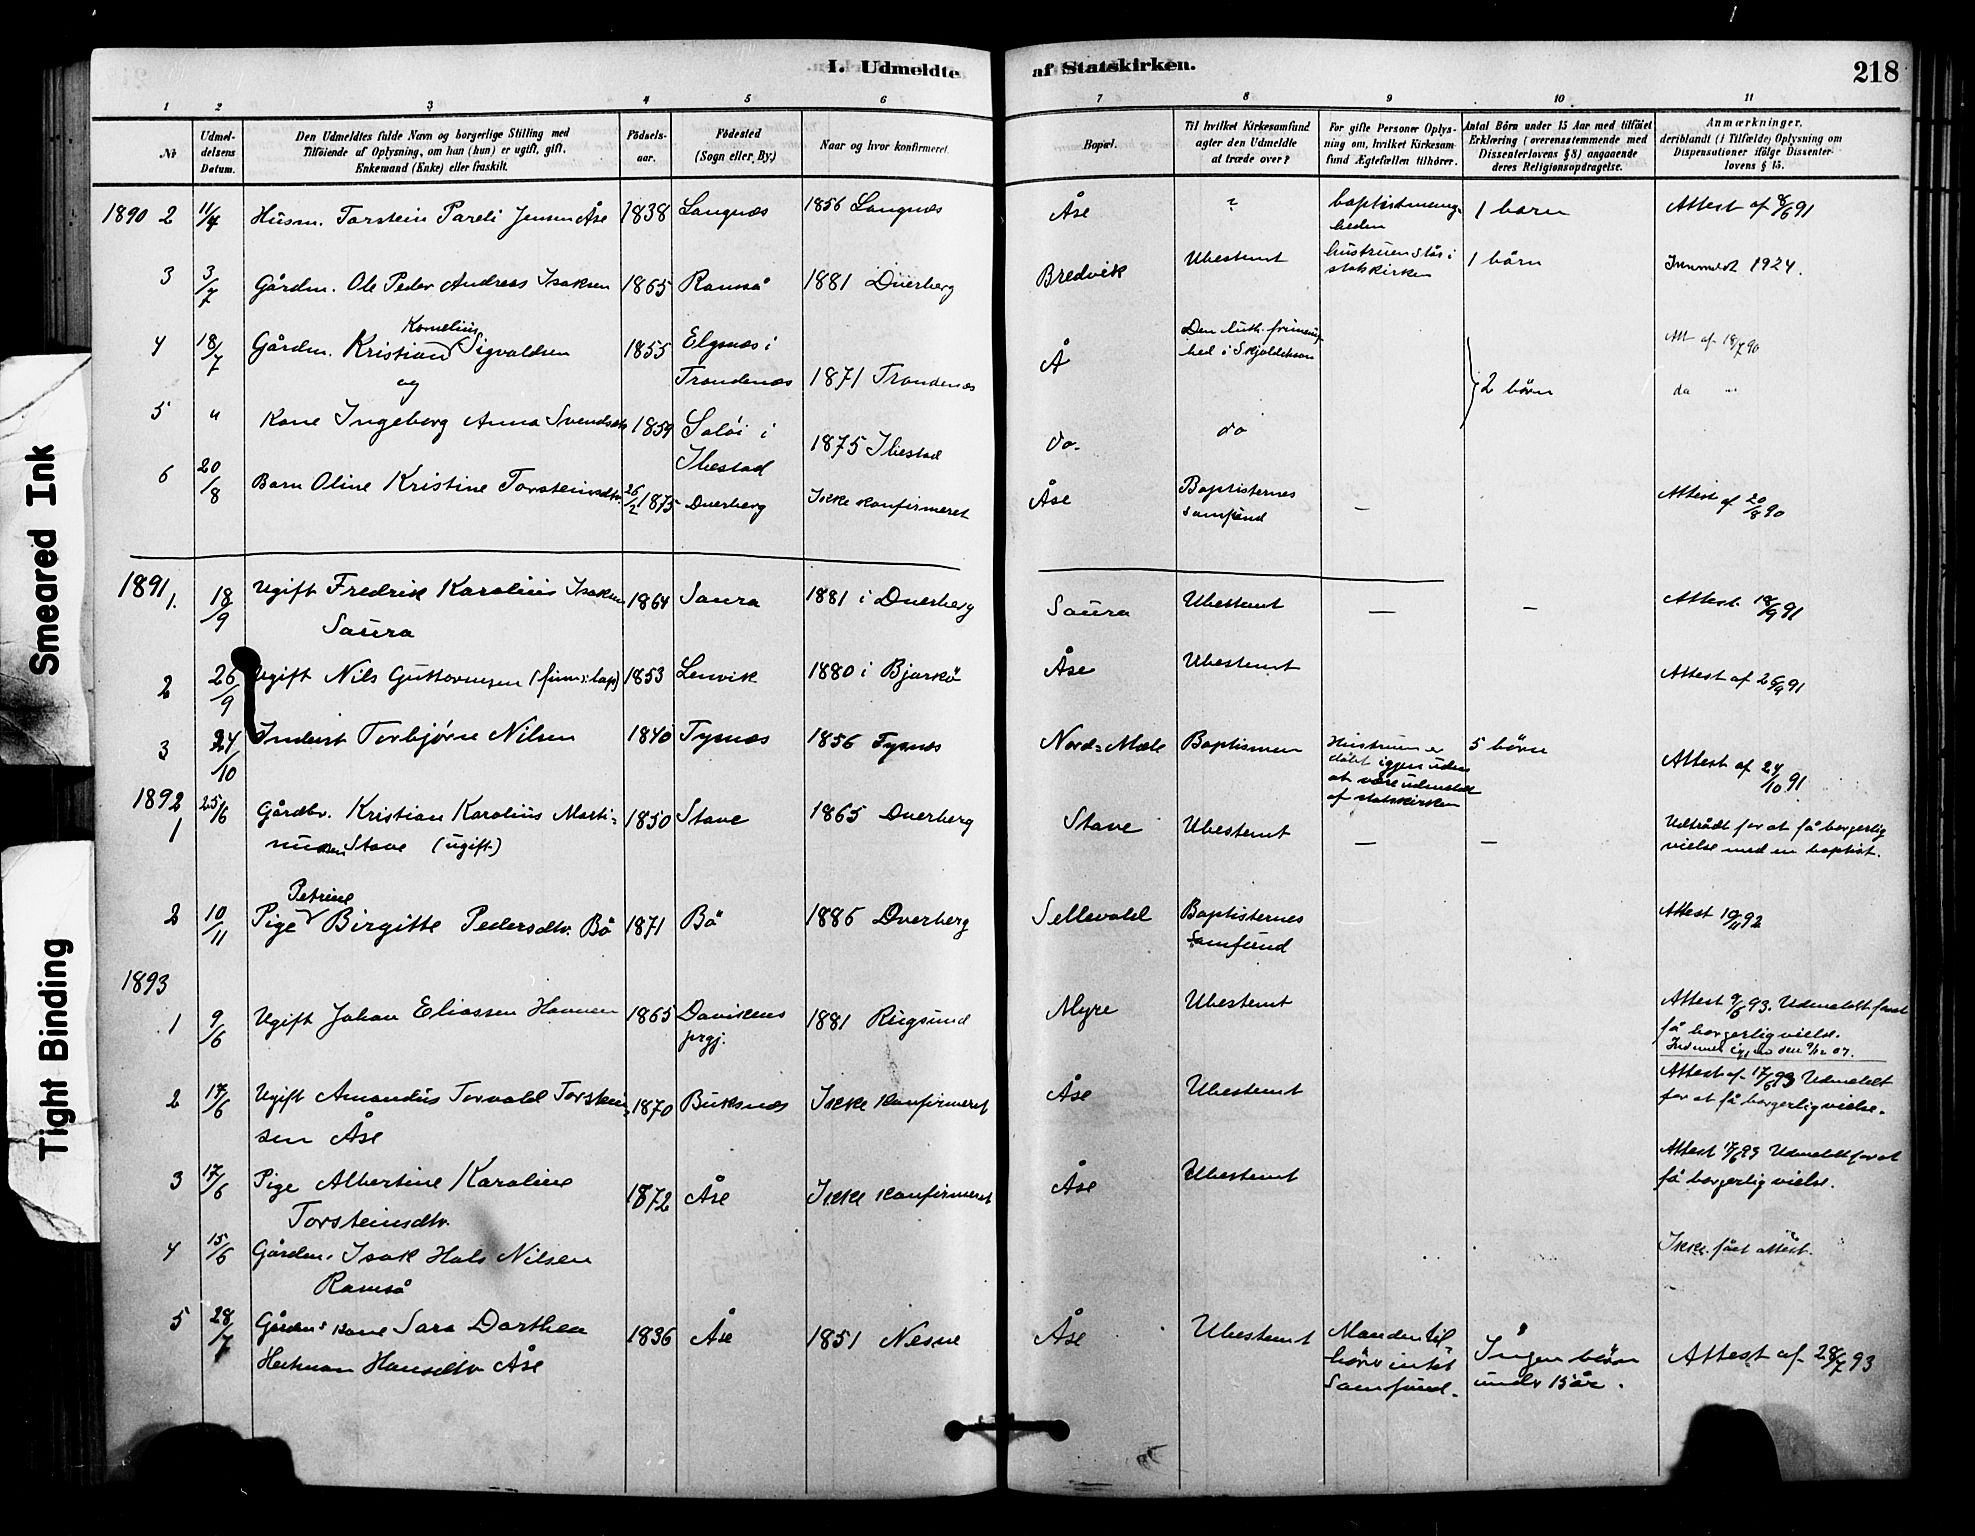 I. Udmeldte af Statskirken. 218
1 2 3 4 5 6 7 8 9 10 11
№
Udmel-
delsens
Datum.
Den Udmeldtes fulde Navn og borgerlige Stilling med
Tilföiende af Oplysning, om han (hun) er ugift, gift,
Enkemand (Enke) eller fraskilt.
Födsels-
aar.
Födested
(Sogn eller By.)
Naar og hvor konfirmeret.
Bopæl.
Til hvilket Kirkesamfund
agter den Udmeldte
at træde over?
For gifte Personer Oplys-
ning om, hvilket Kirkesam-
fund Ægtefællen tilhörer.
Antal Börn under 15 Aar med tilföiet
Erklæring (overensstemmende med
Dissenterlovens § 8) angaaende
deres Religionsopdragelse.
Anmærkninger,
deriblandt (i Tilfælde) Oplysning om
Dispensationer ifölge Dissenter-
lovens § 15.
1890 2 11/4 Husm. Torstein Pareli Jensen Åse 1838 Langnæs 1856 Langnæs Åse ? baptistmenig-
heden 1 barn Attest af 8/6 91
3 3/7 Gårdm. Ole Peder Andreas Isaksen 1865 Ramså 1881 Dverberg Bredvik Ubestemt hustruen står i
statskirken 1 børn Innmeldt 1924.
4 18/7 Gårdm. Kristian Kornelius Sigvaldsen 1855 Elgsnæs i
Trondenæs 1871 Trondenæs Å Den luth. frimenig-
hed i Skjoldehavn Att af 18/7 90
og
2 børn
5 " Kone Ingeborg Anna Svendsdtr 1859 Salöi i
Ibestad 1875 Ibestad do. do do "
6 20/8 Barn Oline Kristine Torsteinsdtr. 26/2 1875 Dverberg Ikke konfirmeret Åse Baptisternes
samfund — Attest af 20/8 90
1891 1. 18/9 Ugift Fredrik Karolius Isaksen
Saura 1864 Saura 1881 i Dverberg Saura Ubestemt — — Attest. 18/9 91
2 26/9 Ugift Nils Guttormsen (finn: lap) 1853 Lenvik 1880 i Bjarkö Åse Ubestemt Attest af 26/9 91
3 24/10 Inderst Torbjørn Nilsen 1840 Tysnæs 1856 Tysnæs Nord-Mæle Baptismen Hustruen er
döbt igjen uden
at være udmeldt
af statskirken 5 börn Attest af 24/10 91
1892 1 25/6 Gårdbr. Kristian Karolius Marti-
nussen Stave (ugift) 1850 Stave 1865 Dverberg Stave Ubestemt — — Udtrådt for at få borgerlig
vielse med en baptist.
2 10/11 Pige Petrine Birgitte Pedersdtr. Bö 1871 Bö 1886 Dverberg Sellevold Baptisternes
Samfund Attest 10/11 92
1893
1 9/6 Ugift Johan Eliassen Havnen 1865 Davikens
prgj. 1881 Rugsund Myre Ubestemt Attest 9/6 93. Udmeldt for at
få borgerlig vielse.
Indmeldt igjen den 9/12 07.
2 17/6 Ugift Amandus Torvald Torstein-
sen Åse 1870 Buksnæs Ikke konfirmeret Åse Ubestemt Attest af 17/6 93 Udmeldt
for at få borgerlig vielse.
3 17/6 Pige Albertine Karoline
Torsteinsdtr. 1872 Åse Ikke konfirmeret Åse Ubestemt Attest 17/6 93 Udmeldt for at
få borgerlig vielse.
4 15/6 Gårdm. Isak Hals Nilsen
Ramså Ikke fået attest.
5 28/7 Gårdms kone Sara Dorthea
Hansdtr Åse 1836 Åse 1851 Nesne Åse Ubestemt Manden til-
hörer intet
Samfund. Ingen börn
under 15 år. Attest af 28/7 93
Smeared Ink
Tight Binding